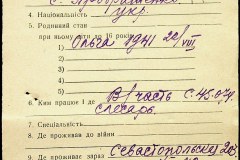 4. Національність укр.
5. Родинний стан
при ньому діти до 16 років:
1) Ольга 1941 20/VIII
2)
3)
4)
5)
6. Ким працює і де В/часть
слесарь.
7. Спеціяльність
8. Де проживав до війни
9. Де проживає зараз Севастопольская